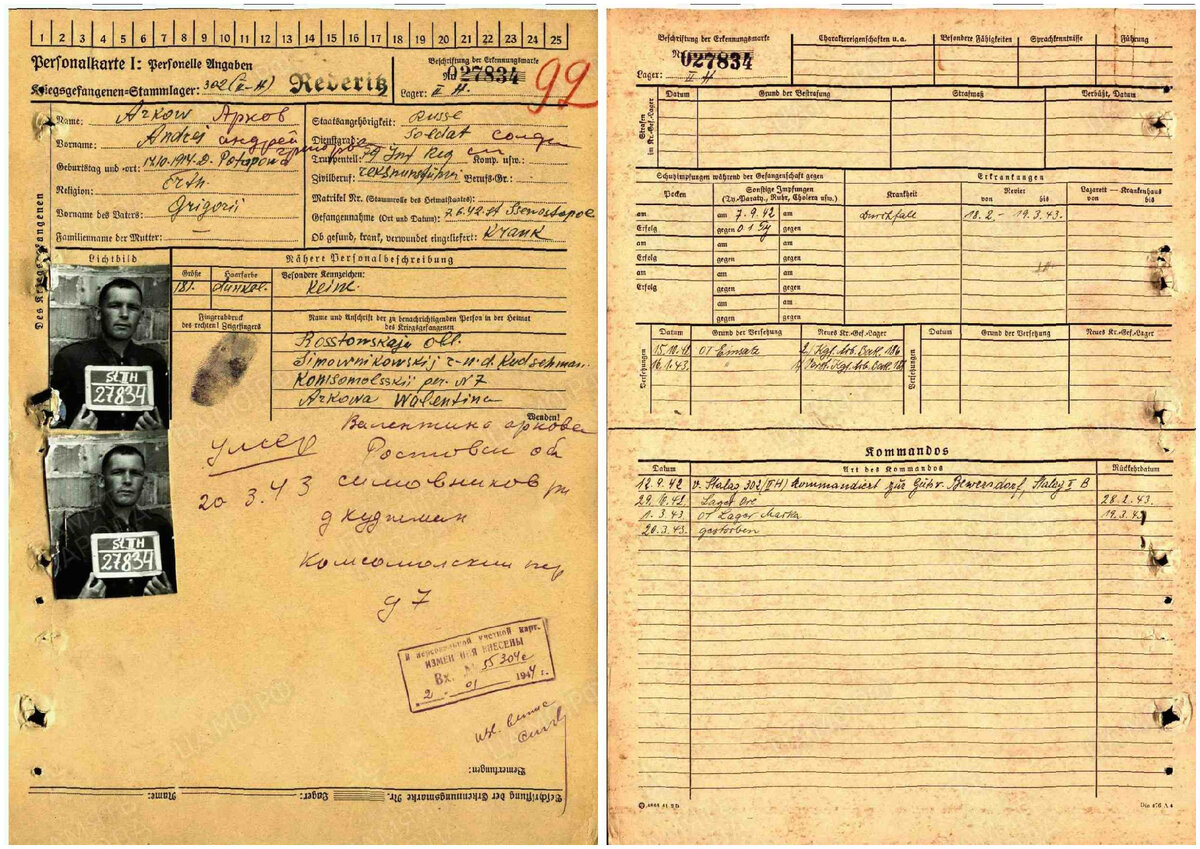 1 2 3 4 5 6 7 8 9 10 11 12 13 14 15 16 17 18 19 20 21 22 23 24 25
Personalkarte I: Personelle Angaben
Kriegsgefangenen-Stammlager: 302 (II-H) Rederitz
Beschriftung der Erkennungsmarke
Nr. 027834
Lager: II H.
99
Des Kriegsgefangenen
Name: Arkow Арков
Vorname: Andrej андрей
Geburtstag und -ort: 17.10.1914. D. Potapowo
Religion: Orth.
Vorname des Vaters: Grigorii
Familienname der Mutter: —
Staatsangehörigkeit: Russe
Dienstgrad: Soldat солдат
Truppenteil: 79 Inf Reg Komp. usw.:
Zivilberuf: Berufs-Gr.:
Matrikel Nr. (Stammrolle des Heimatstaates):
Gefangennahme (Ort und Datum): 7.6.42. St Sewastopol
Ob gesund, krank, verwundet eingeliefert: Krank
Lichtbild
Nähere Personalbeschreibung
Größe Haarfarbe Besondere Kennzeichen:
181. dunkel. Keine.
Fingerabdruck
des rechten! Zeigefingers
Name und Anschrift der zu benachrichtigenden Person in der Heimat
des Kriegsgefangenen
Rosstowskaja obl.
Simownikowskij r-n. d. Kudschman.
Komsomolsskij per. N 7
Arkowa Walentina
Wenden!
St II H
27834
St II H
27834
умер
20 3.43
Валентина аркова
Ростовск об
симовников рн
д кудшман
Комсомолский пер
д 7
В персональной учетной карт.
ИЗМЕНЕНИЯ ВНЕСЕНЫ
Вх. № 55304с
2 01 194 г.
Bemerkungen:
Beschriftung der Erkennungsmarke Nr. Lager: Name:
Beschriftung der Erkennungsmarke
Nr. 027834
Lager: II H
Charaktereigenschaften u.a. Besondere Fähigkeiten Sprachkenntnisse Führung
Strafen im Kr.-Gef.-Lager
Datum Grund der Bestrafung Strafmaß Verbüßt, Datum
Schutzimpfungen während der Gefangenschaft gegen
Erkrankungen
Pocken
Sonstige Impfungen
(Ty.-Paraty., Ruhr, Cholera usw.)
Krankheit
Revier
von bis
Lazarett — Krankenhaus
von bis
am am 7.9.42 am Durchfall 18.2. – 19.3.43.
Erfolg gegen gegen
am am am
Erfolg gegen gegen
am am am
Erfolg gegen gegen
am am
gegen gegen
Versetzungen
Datum Grund der Versetzung Neues Kr.-Gef.-Lager
15.10.42 OT Einsatz Kgf. Arb. Batl. 186
16.1.43. "
Versetzungen
Datum Grund der Versetzung Neues Kr.-Gef.-Lager
Kommandos
Datum Art des Kommandos Rückkehrdatum
12.9.42 v. Stalag 302 (II H) kommandiert zur Bewersdorf, Stalag II B
29.10.42. Lager 28.2.43.
1.3.43. OT Lager Marka 19.3.43
20.3.43. gestorben